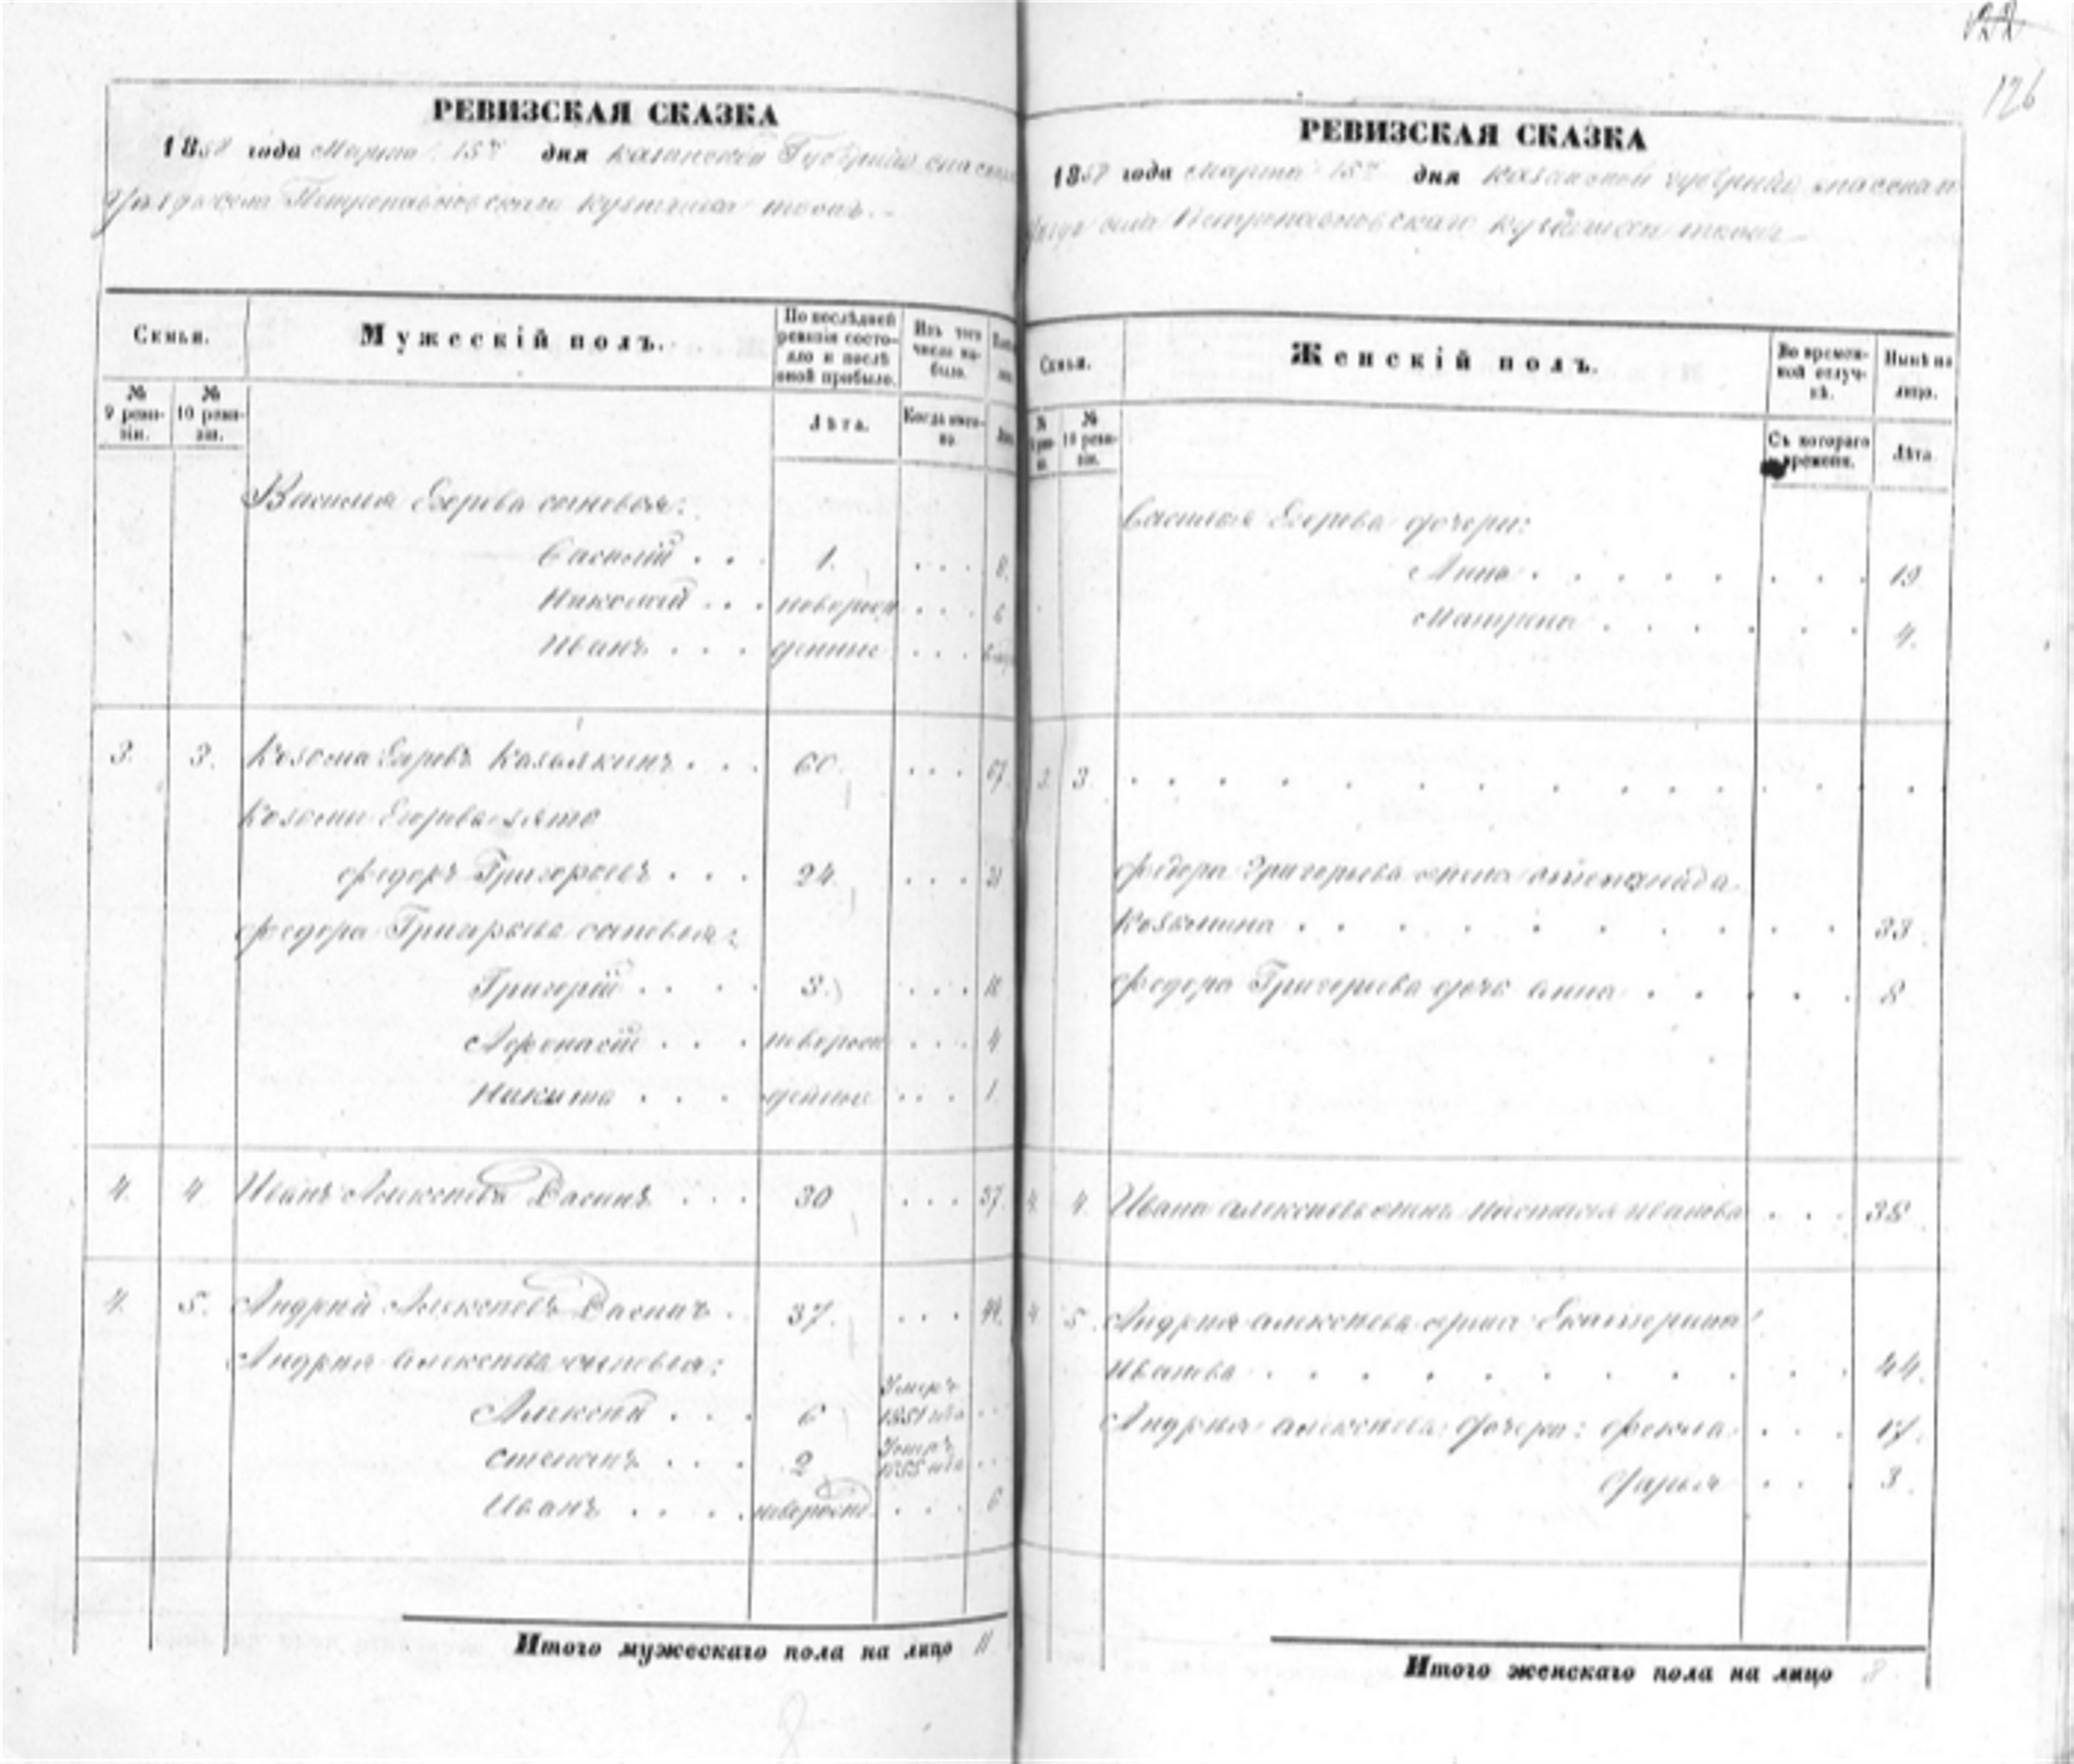 122
126
РЕВИЗСКАЯ СКАЗКА
1858 года Марта 15го дня Казанской Губернии Спасскаго
Уезда села Петропавловскаго Кузнечиха тожъ.
Семьи.
Мужескій полъ.
По послѣдней ревизіи состояло и послѣ оной прибыло.
Изъ того числа выбыло.
№ 9 ревизіи.
№ 10 ревизіи.
Лѣта.
Когда именно.
Василья Егорова сыновья:
Василій . . . 1. . . . 8.
Николай . . . новорож . . . 6
Иванъ . . . денные . . .
3. 3. Козьма Егоровъ . . . 60. . . . 67.
Козьмы Егорова зять
Федоръ Григорьевъ . . . 24. . . . 31
Федора Григорьева сыновья:
Григорій . . . 3. . . . 10
Афонасій . . . новорож . . . 4
Никита . . . денные . . . 1.
4. 4 Иванъ Алексѣевъ . . . 30 . . . 37.
4. 5. Андрей Алексѣевъ . 37. . . . 44.
Андрея Алексѣева сыновья:
Алексѣй . . . 6 Умеръ 1851 года . . .
Степанъ . . . 2 Умеръ 1855 года . . .
Иванъ . . . новорожд. . . . 6
Итого мужескаго пола на лицо 11
РЕВИЗСКАЯ СКАЗКА
1858 года Марта 15го дня Казанской губернии Спасскаго
села Петропавловскаго тожъ
Семьи.
Женскій полъ.
Во временной отлучкѣ.
Нынѣ на лицо.
№ 10 ревизіи.
Съ котораго времени.
Лѣта
Василья Егорова дочери:
Анна . . . . . . . . 19.
Матрена . . . . . . 4.
3. 3. . . . . . . . . . . . . .
Федора Григорьева жена
Козьмина . . . . . . . . . 33.
Федора Григорьева дочь Анна . . . . . 8
4. 4. Ивана Алексѣева жена Настасья Иванова . . . 38
4 5. Андрея Алексѣева жена Екатерина
Иванова . . . . . . . . . 44.
Андрея Алексѣева дочери: Фекла . . . 17.
Дарья . . . 3.
Итого женскаго пола на лицо 8